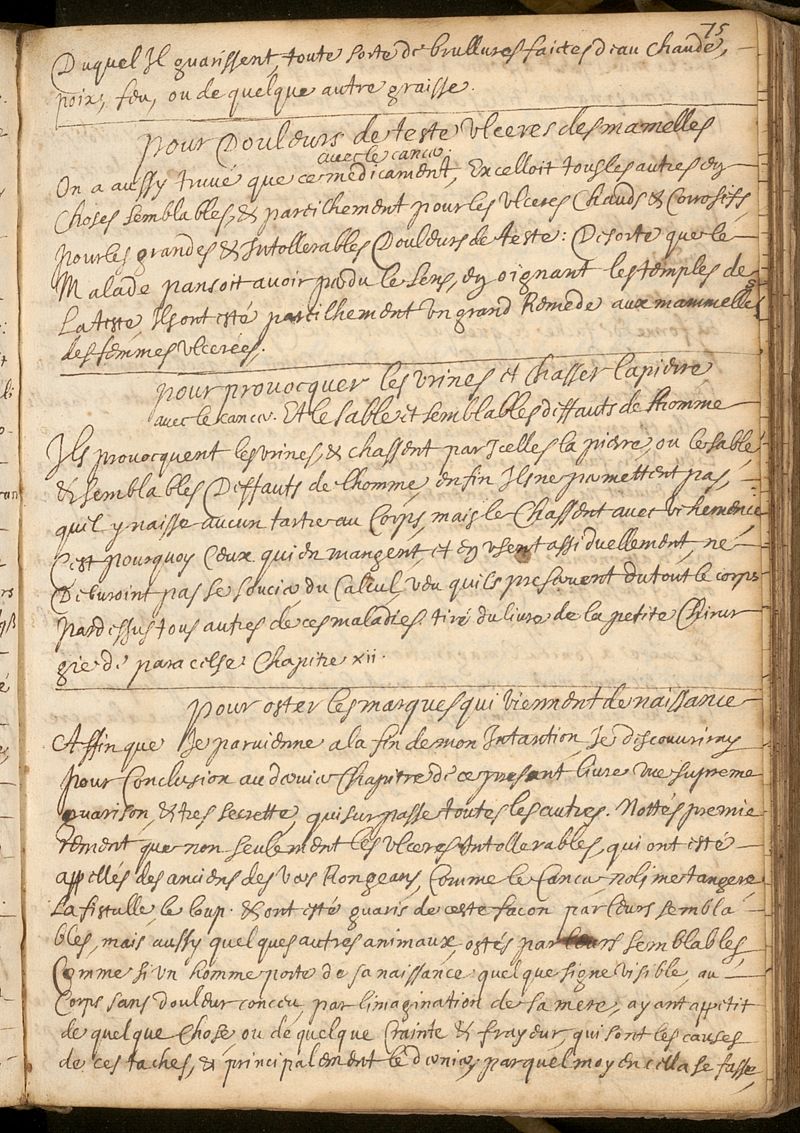 75
Duquel Il guarissent, toute sorte de brullures faictes deau chaude,
poix, feu, ou de quelque autre graisse.
pour Douleurs de teste ulceres des mamelles
avec le cancer.
On a aussy truvé que ce medicament, Excelloit tous les autres en
Choses semblables, & pareilhement pour les ulceres Chauds & Corrosifs,
pour les grandes & Intollerables Douleurs de teste: De sorte que le
Malade pansoit avoir perdu le sens, en oignant les temples de
La teste, Ils ont esté pareilhement un grand Remede aux mammelles
des femmes ulcerees.
pour provocquer les urines et Chasser la pierre
avec le cancer. Et le sable et semblables deffauts de lhomme
Ils provocquent les urines, & chassent par Icelles la pierre, ou le sable
& semblables Deffauts de lhomme, enfin Ils ne permettent pas,
quil y naisse aucun tartre au Corps, mais le Chassent avec vehemence
C'est pourquoy Ceux qui en mangent, et en usent assiduellement, ne
Debvroint pas se soucier du Calcul, veu quils preservent du tout le corps
par dessus tous autres de ces maladies. tiré du livre de la petite Chirur
gie de paracelse Chapitre xii.
pour oster les marques qui viennent de naissance
Affin que Je parvienne a la fin de mon Intantion Je descouvriray
pour Conclusion au dernier Chapitre de ce present livre une supreme
guarison, & tres secrette, qui surpasse toutes les autres. Nottés premie
rement que non seulement les ulceres Intollerables, qui ont esté
appellés des anciens des vers Rongeans, Comme le Cancer noli me tangere
La fistulle, le loup. & ont esté guaris de ceste facon par leurs sembla
bles, mais aussy quelques autres animaux, ostés par leurs semblables,
Comme si un homme porte de sa naissance quelque signe visible, au
Corps sans douleur conceu par limagination de sa mere, ayant appetit
de quelque chose ou de quelque Crainte & frayeur, qui sont les causes
de ces taches, & principalement le dernier, par quel moyen cella se fasse